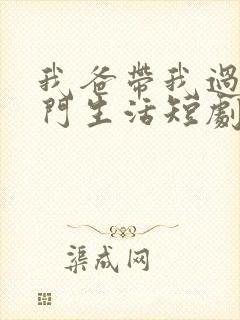 我爸帶我過
門生活短劇
渠成网